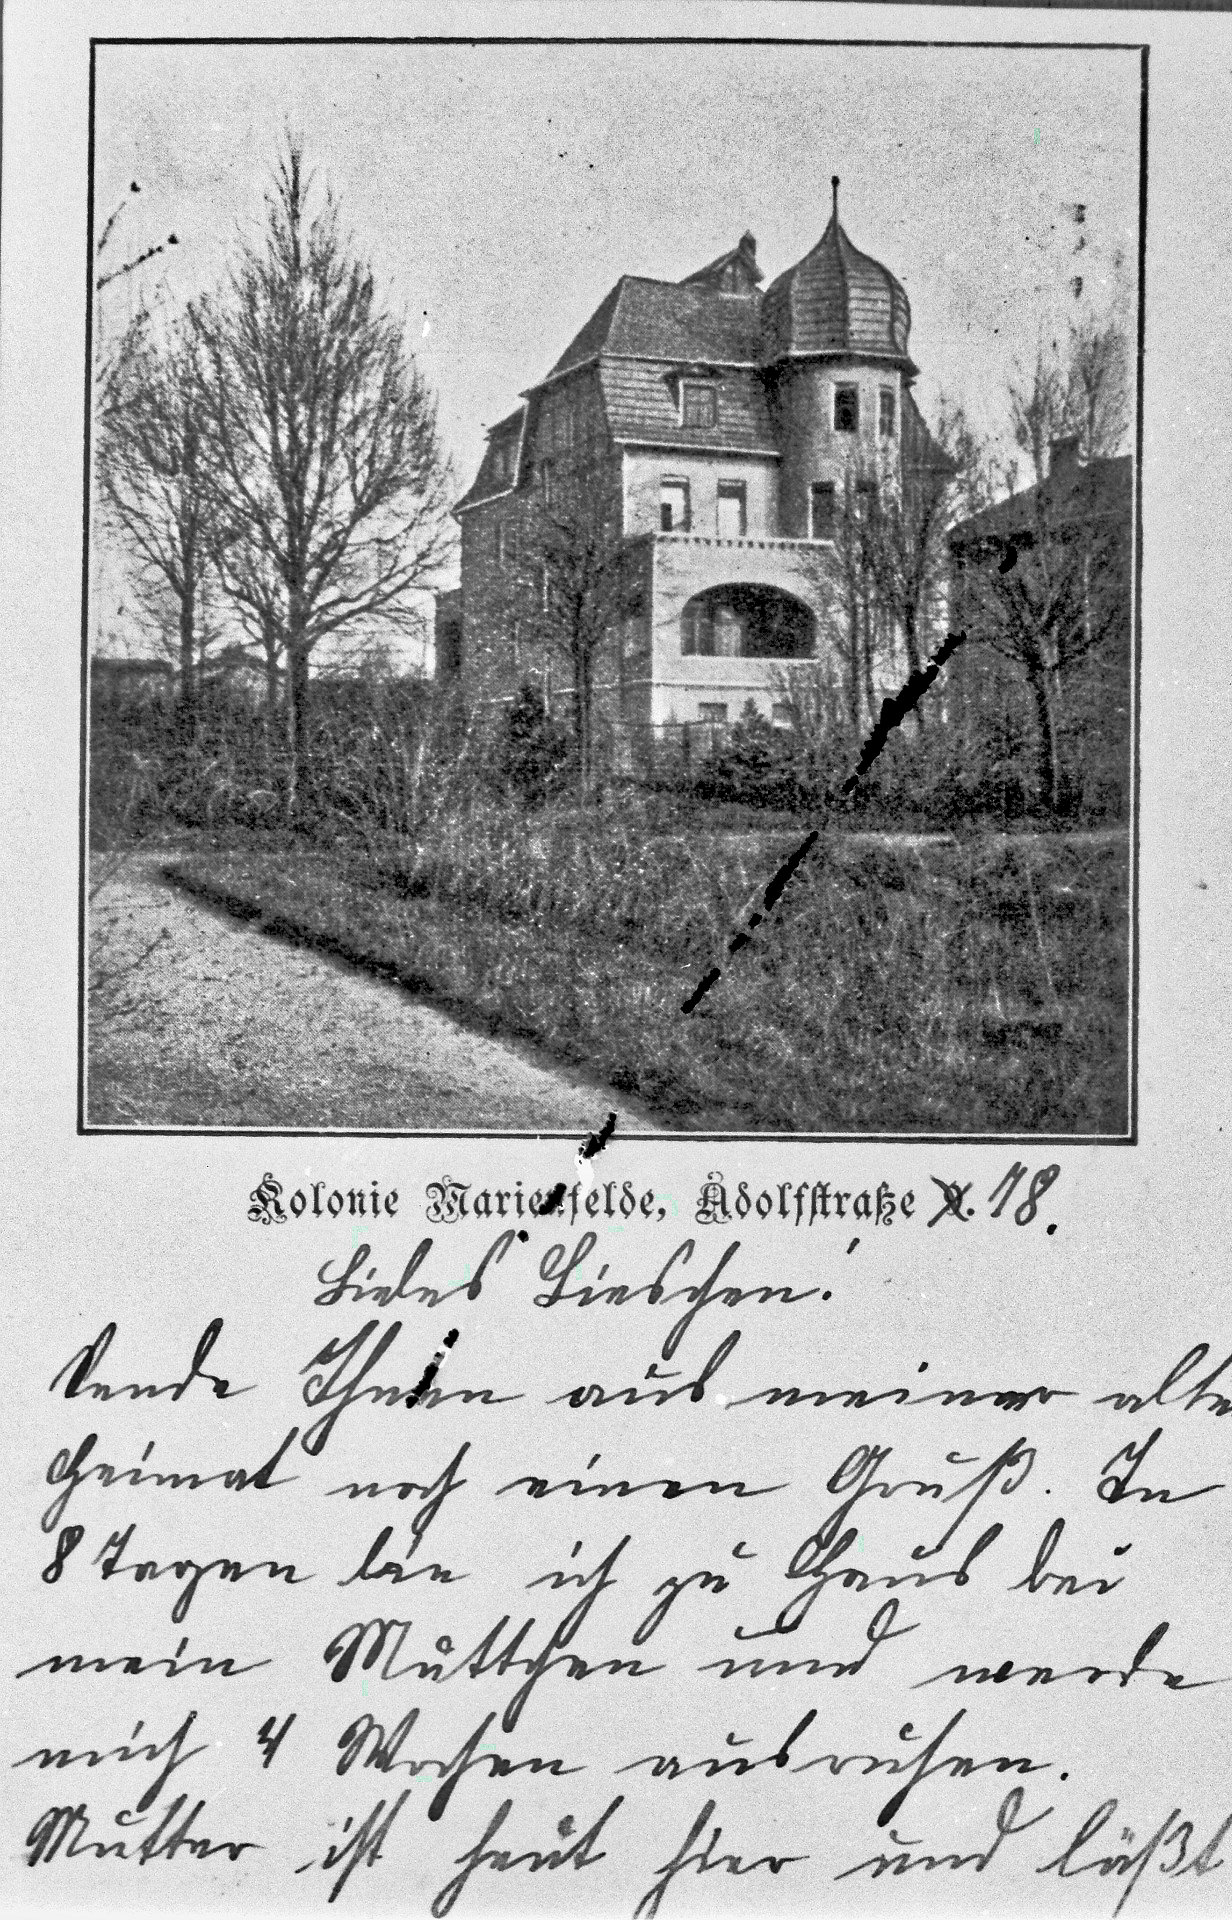 Kolonie Marienfelde, Adolfstraße 18.
Liebes Lieschen!
Sende Ihnen aus meiner alte
Heimat noch einen Gruß. In
8 Tagen bin ich zu Haus bei
mein Muttchen und werde
mich 4 Wochen ausruhen.
Mutter ist heut hier und läßt